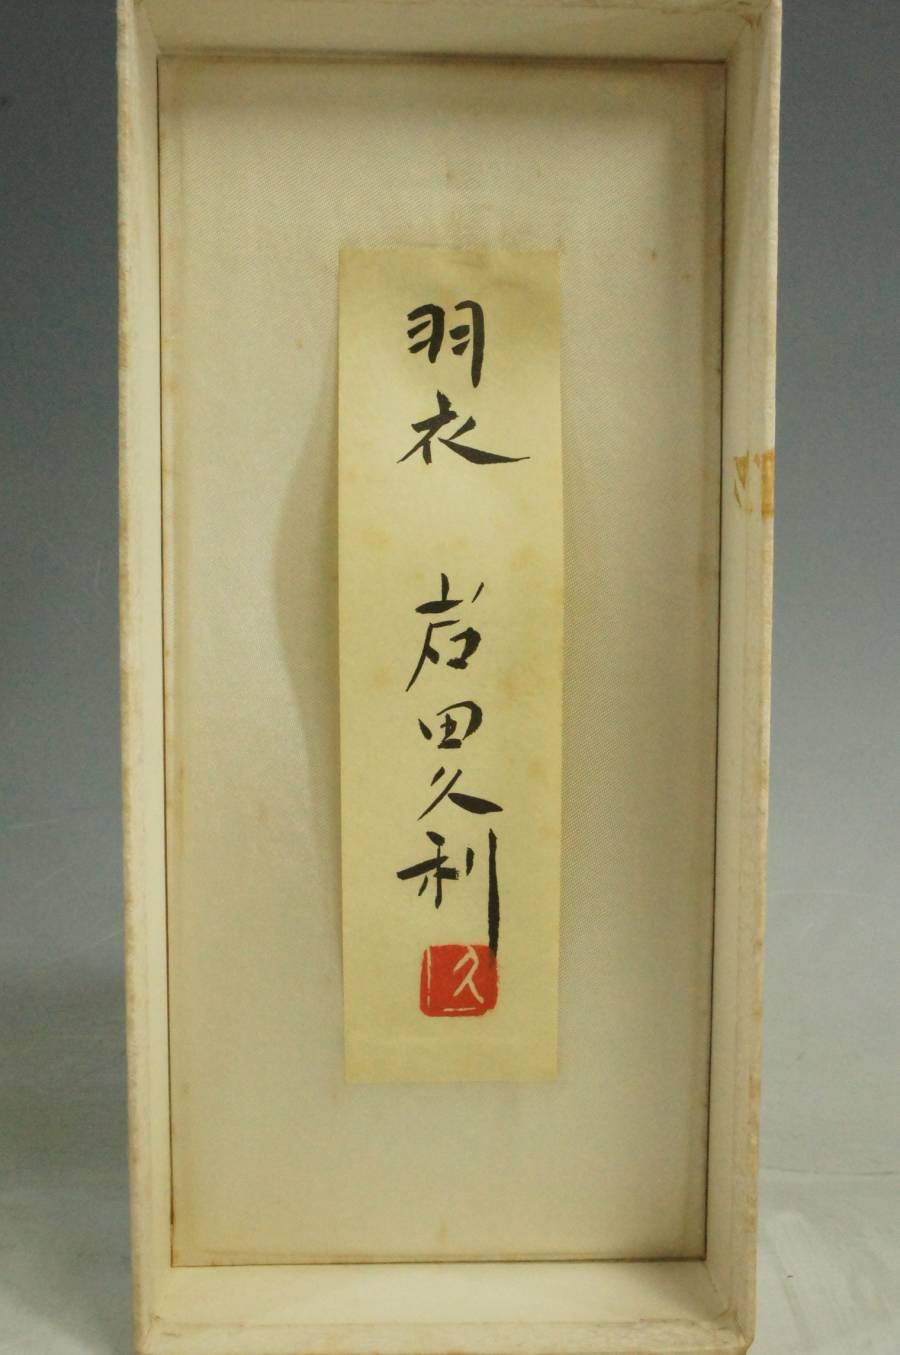 羽衣 岩田久利
久